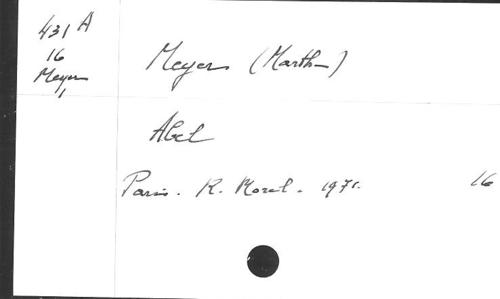 431 A
16
Meyer
1
Meyer (Marthe)
Abel
Paris. R. Morel. 1971.
16